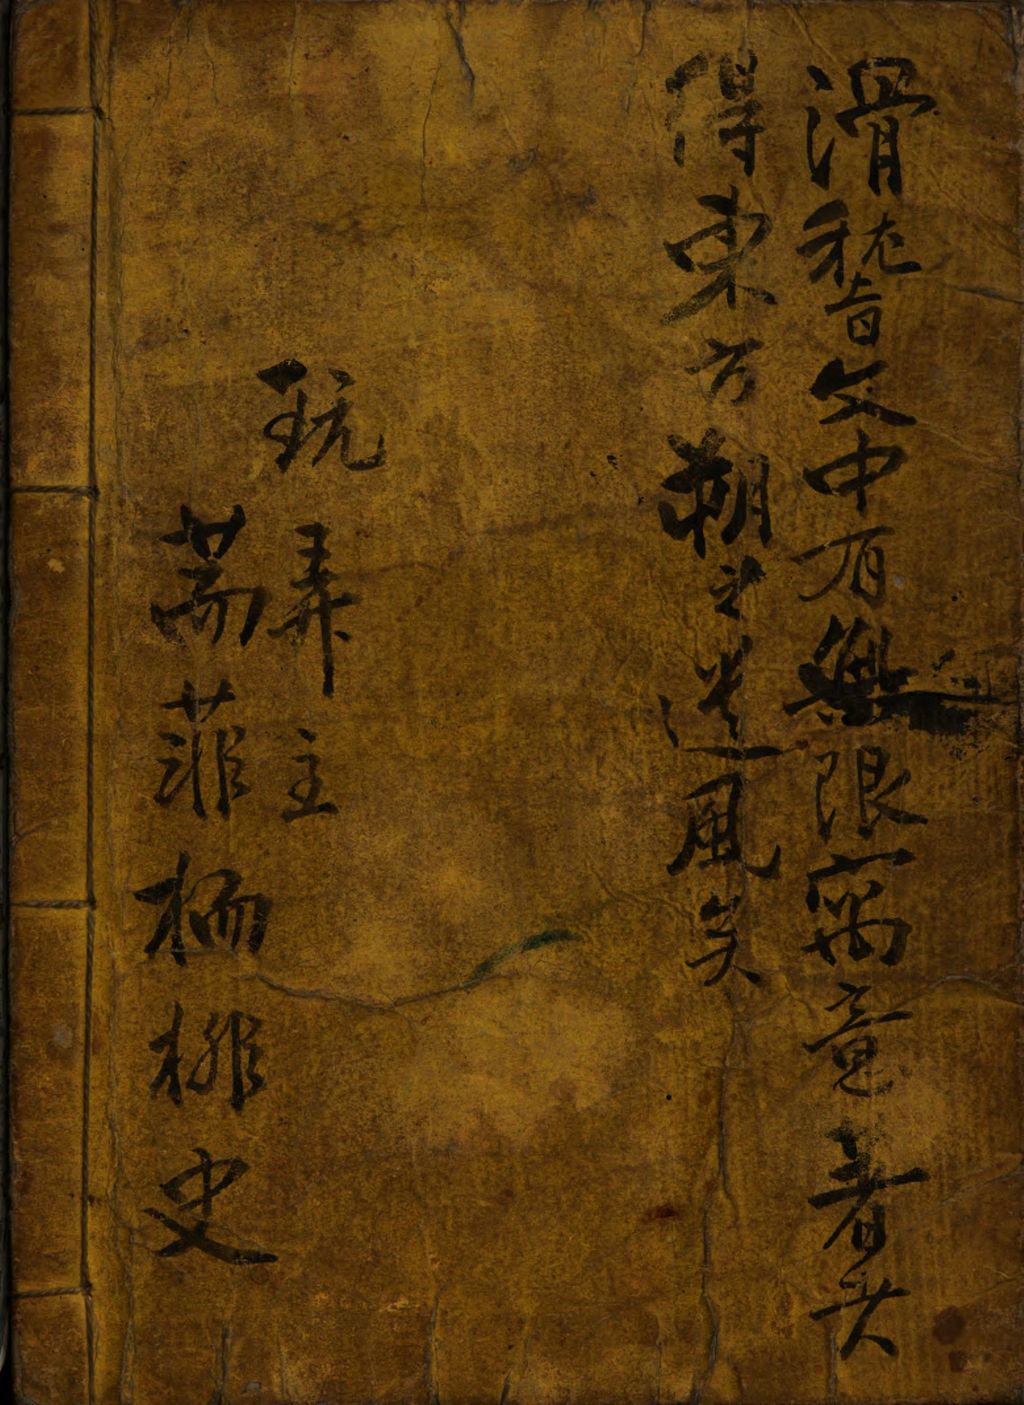 滑稽文中有無限寓意者共
得東方朔之遺風矣
玩弄主
荋菲栭棑史